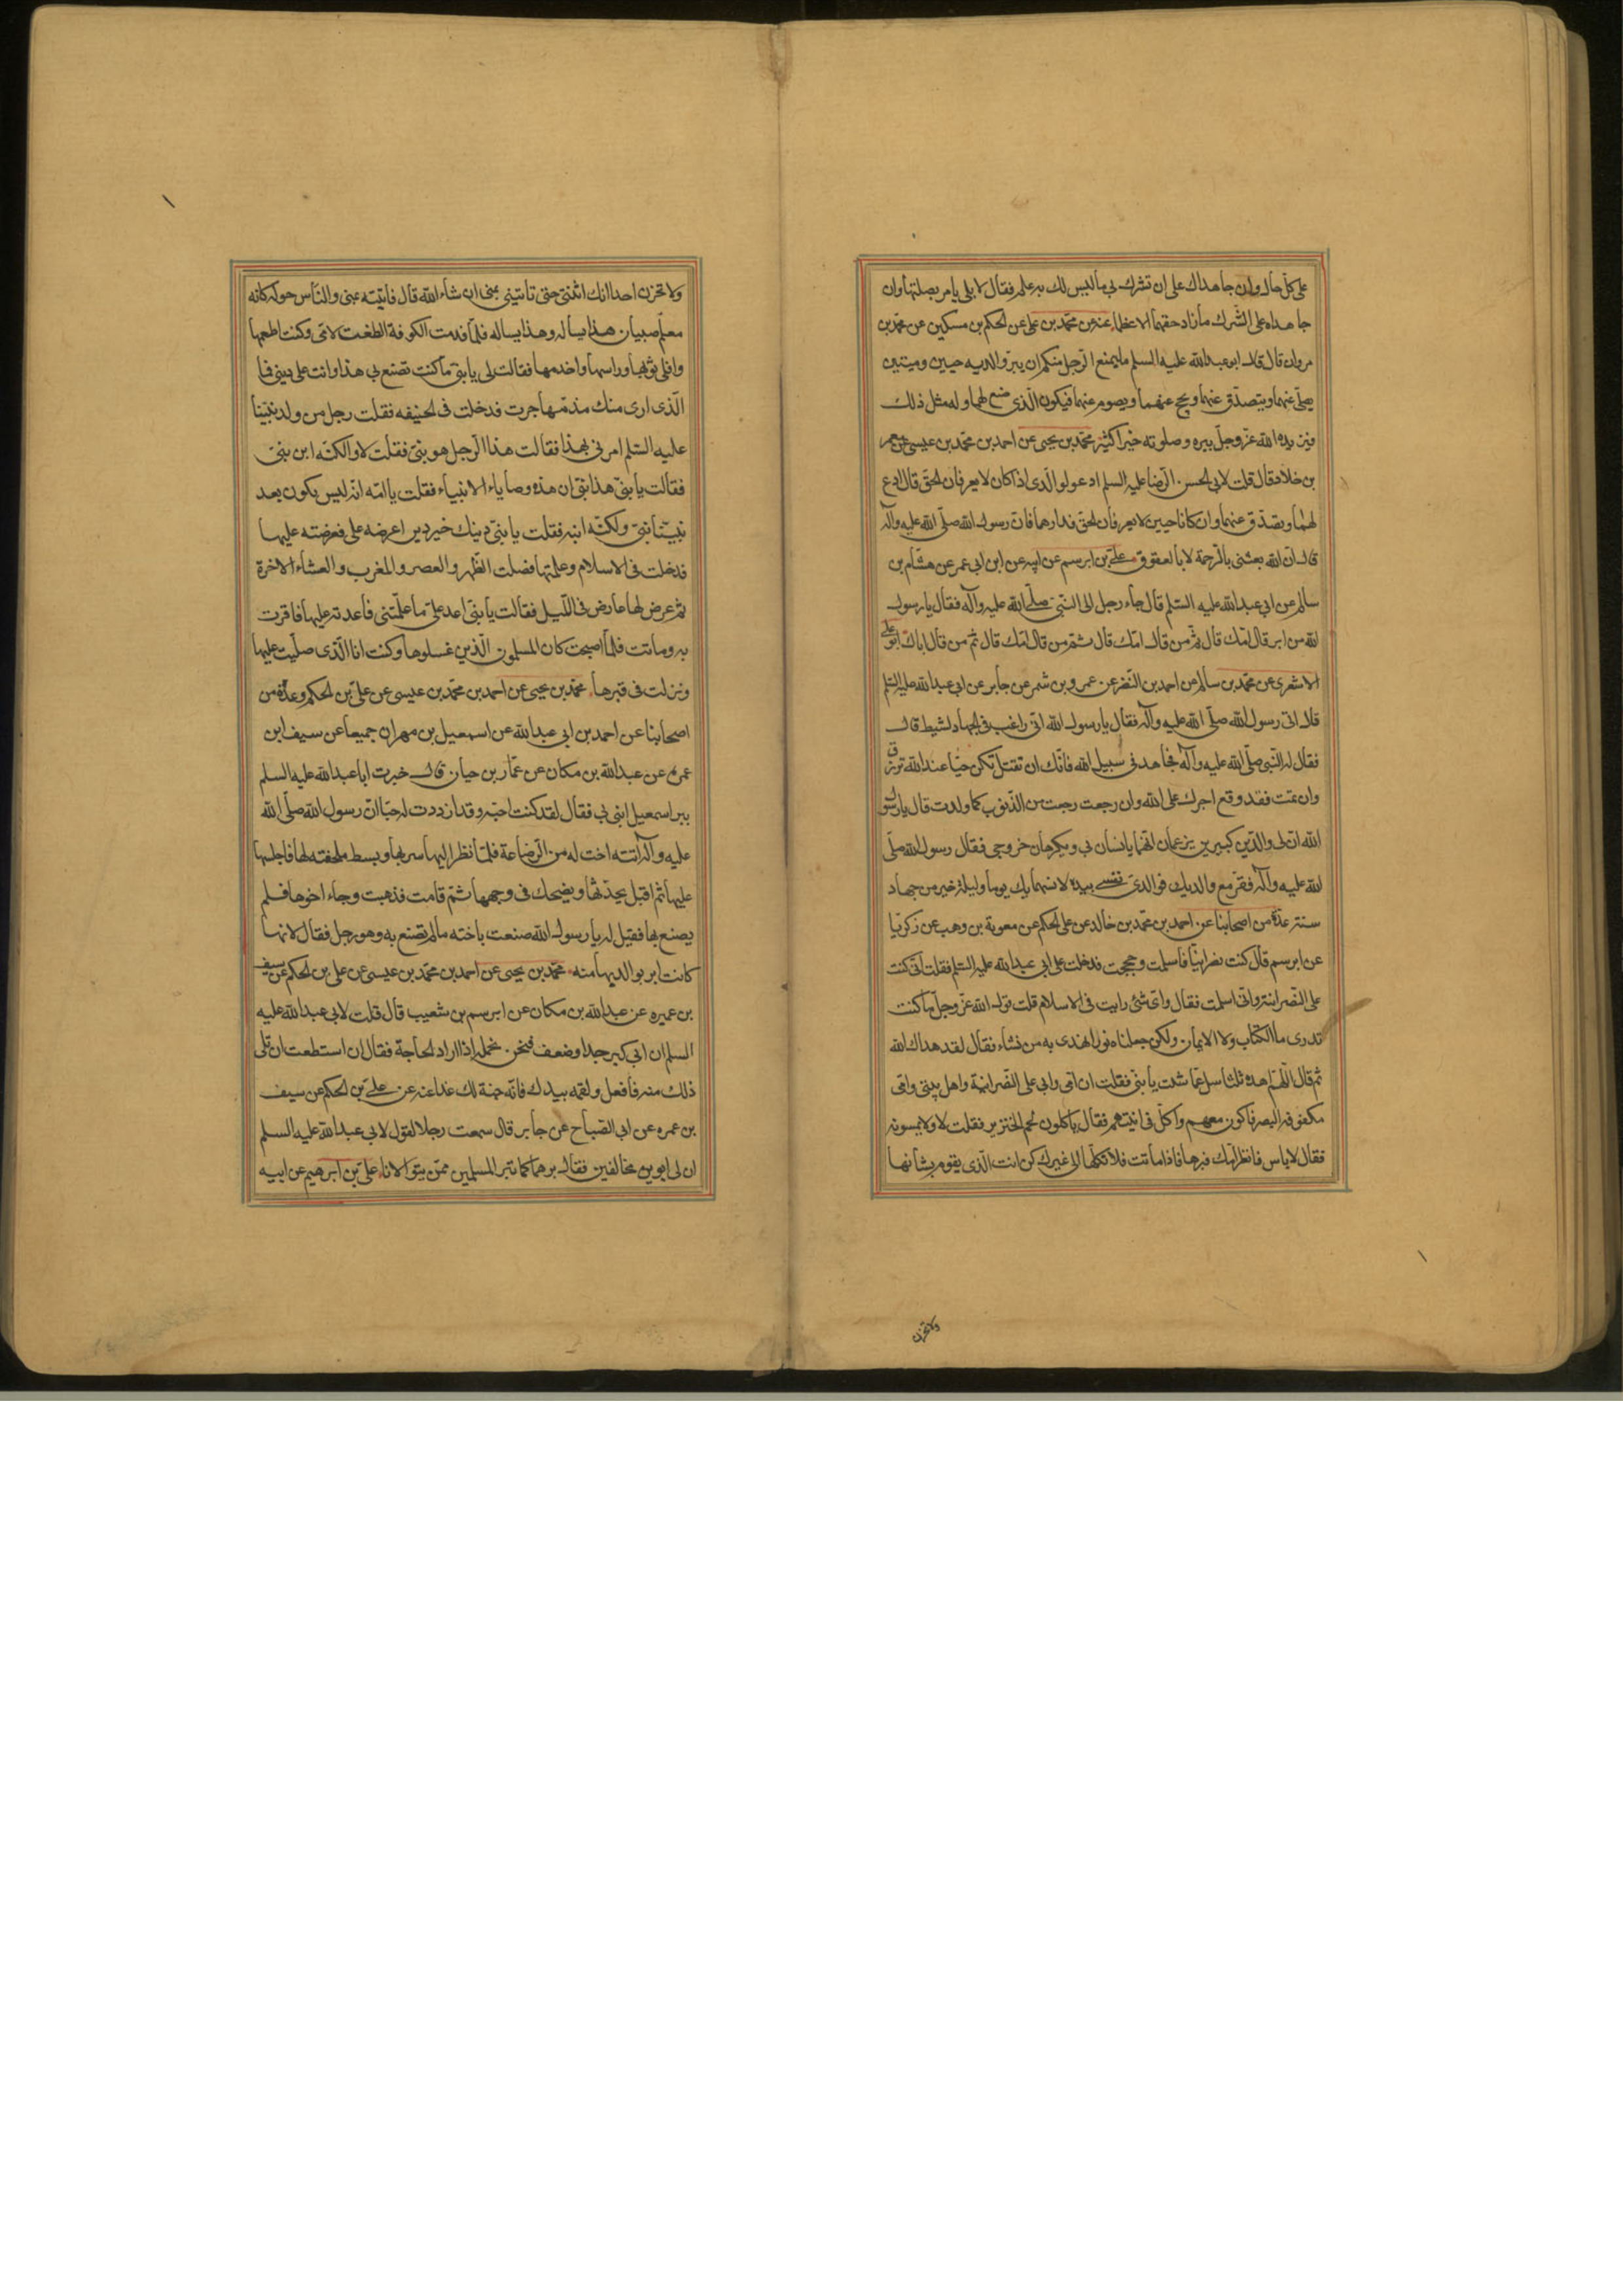 على كل حال وان جاهداك على ان تشرك بي ما ليس لك به علم فقال لا بلى يامر بصلتهما وان
جاهداه على الشرك ما زاد حقهما الا عظما عنه عن محمد بن على عن الحكم بن مسكين عن محمد بن
مروان قال قال ابو عبد الله عليه السلم ما يمنع الرجل منكم ان يبر والديه حيين وميتين
يصلى عنهما ويتصدق عنهما ويحج عنهما ويصوم عنهما فيكون الذى صنع لهما وله مثل ذلك
فيزيده الله عز وجل ببره وصلوته خيرا كثيرا محمد بن يحيى عن احمد بن محمد بن عيسى عن معمر
بن خلاد قال قلت لابى الحسن الرضا عليه السلم ادعو لوالدى اذا كان لا يعرفان الحق قال ادع
لهما وتصدق عنهما وان كانا حيين لا يعرفان الحق فدارهما فان رسول الله صلى الله عليه وآله
قال ان الله بعثنى بالرحمة لا بالعقوق على بن ابرهيم عن ابيه عن ابن ابى عمير عن هشام بن
سالم عن ابى عبد الله عليه السلم قال جاء رجل الى النبى صلى الله عليه وآله فقال يا رسول
الله من ابر قال امك قال ثم من قال امك قال ثم من قال امك قال ثم من قال اباك ابو على
الاشعرى عن محمد بن سالم عن احمد بن النضر عن عمرو بن شمر عن جابر عن ابى عبد الله عليه السلم
قال اتى رسول الله صلى الله عليه وآله فقال يا رسول الله انى راغب فى الجهاد نشيط قال
فقال له النبى صلى الله عليه وآله فجاهد فى سبيل الله فانك ان تقتل تكن حيا عند الله ترزق
وان تمت فقد وقع اجرك على الله وان رجعت رجعت من الذنوب كما ولدت قال يا رسول
الله ان لى والدين كبيرين يزعمان انهما يانسان بى ويكرهان خروجى فقال رسول الله صلى
الله عليه وآله فقر مع والديك فوالذى نفسى بيده لانسهما بك يوما وليلة خير من جهاد
سنة عدة من اصحابنا عن احمد بن محمد بن خالد عن على الحكم عن معوية بن وهب عن زكريا
عن ابرهيم قال كنت نصرانيا فاسلمت وحججت فدخلت على ابى عبد الله عليه السلم فقلت انى كنت
على النصرانية وانى اسلمت فقال واى شئ رايت فى الاسلام قلت قول الله عز وجل ما كنت
تدرى ما الكتاب ولا الايمان ولكن جعلناه نورا نهدى به من نشاء فقال لقد هداك الله
ثم قال اللهم اهده ثلثا سل عما شئت يا بنى فقلت ان امى وابى على النصرانية واهل بيتى وامى
مكفوفة البصر فاكون معهم واكل فى انيتهم فقال ياكلون لحم الخنزير فقلت لا ولا يمسونه
فقال لا باس فانظر امك فبرها فاذا ماتت فلا تكلها الى غيرك كن انت الذى يقوم بشانها
ولا تحزن
ولا تخبرن احدا انك اتيتنى حتى تاتينى بمنى ان شاء الله قال فاتيته بمنى والناس حوله كانه
معلم صبيان هذا يساله وهذا يساله فلما قدمت الكوفة الطفت لامى وكنت اطعمها
وافلى ثوبها وراسها واخدمها فقالت لى يا بنى ما كنت تصنع بى هذا وانت على دينى فما
الذى ارى منك منذ هاجرت فدخلت فى الحنيفه فقلت رجل من ولد نبينا
عليه السلم امرنى بهذا فقالت هذا الرجل هو نبى فقلت لا ولكنه ابن نبى
فقالت يا بنى هذا نبى ان هذه وصاياء الانبياء فقلت يا امه انه ليس يكون بعد
نبينا نبى ولكنه ابنه فقلت يا بنى دينك خير دين اعرضه على فعرضته عليها
فدخلت فى الاسلام وعلمتها فصلت الظهر والعصر والمغرب والعشاء الاخرة
ثم عرض لها عارض فى الليل فقالت يا بنى اعد على ما علمتنى فاعدته عليها فاقرت
به وماتت فلما اصبحت كان المسلمون الذين غسلوها وكنت انا الذى صليت عليها
ونزلت فى قبرها محمد بن يحيى عن احمد بن محمد بن عيسى عن على بن الحكم وعدة من
اصحابنا عن احمد بن ابى عبد الله عن اسمعيل بن مهران جميعا عن سيف ابن
عمرة عن عبد الله بن مكان عن عمار بن حيان قال خبرت ابا عبد الله عليه السلم
ببر اسمعيل ابنى بى فقال لقد كنت احبه وقد ازددت له حبا ان رسول الله صلى الله
عليه وآله اتته اخت له من الرضاعة فلما نظر اليها سر بها وبسط ملحفته لها فاجلسها
عليها ثم اقبل يحدثها ويضحك فى وجهها ثم قامت فذهبت وجاء اخوها فلم
يصنع بها فقيل له يا رسول الله صنعت باخته ما لم تصنع به وهو رجل فقال لانها
كانت ابر بوالديها منه محمد بن يحيى عن احمد بن محمد بن عيسى عن على بن الحكم عن سيف
بن عميره عن عبد الله بن مكان عن ابرهيم بن شعيب قال قلت لابى عبد الله عليه
السلم ان ابى كبر جدا وضعف فنحن نحمله اذا اراد الحاجة فقال ان استطعت ان تلى
ذلك منه فافعل ولقمه بيدك فانه جنة لك غدا عنه عن على بن الحكم عن سيف
بن عمره عن ابى الصباح عن جابر قال سمعت رجلا يقول لابى عبد الله عليه السلم
ان لى ابوين مخالفين فقال برهما كما تبر المسلمين ممن يتوالانا على بن ابرهيم عن ابيه